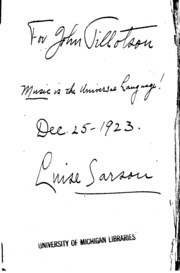 For John Tillotson
Music is the Universal Language!
Dec. 25-1923.
Luise Sarson
UNIVERSITY OF MICHIGAN LIBRARIES